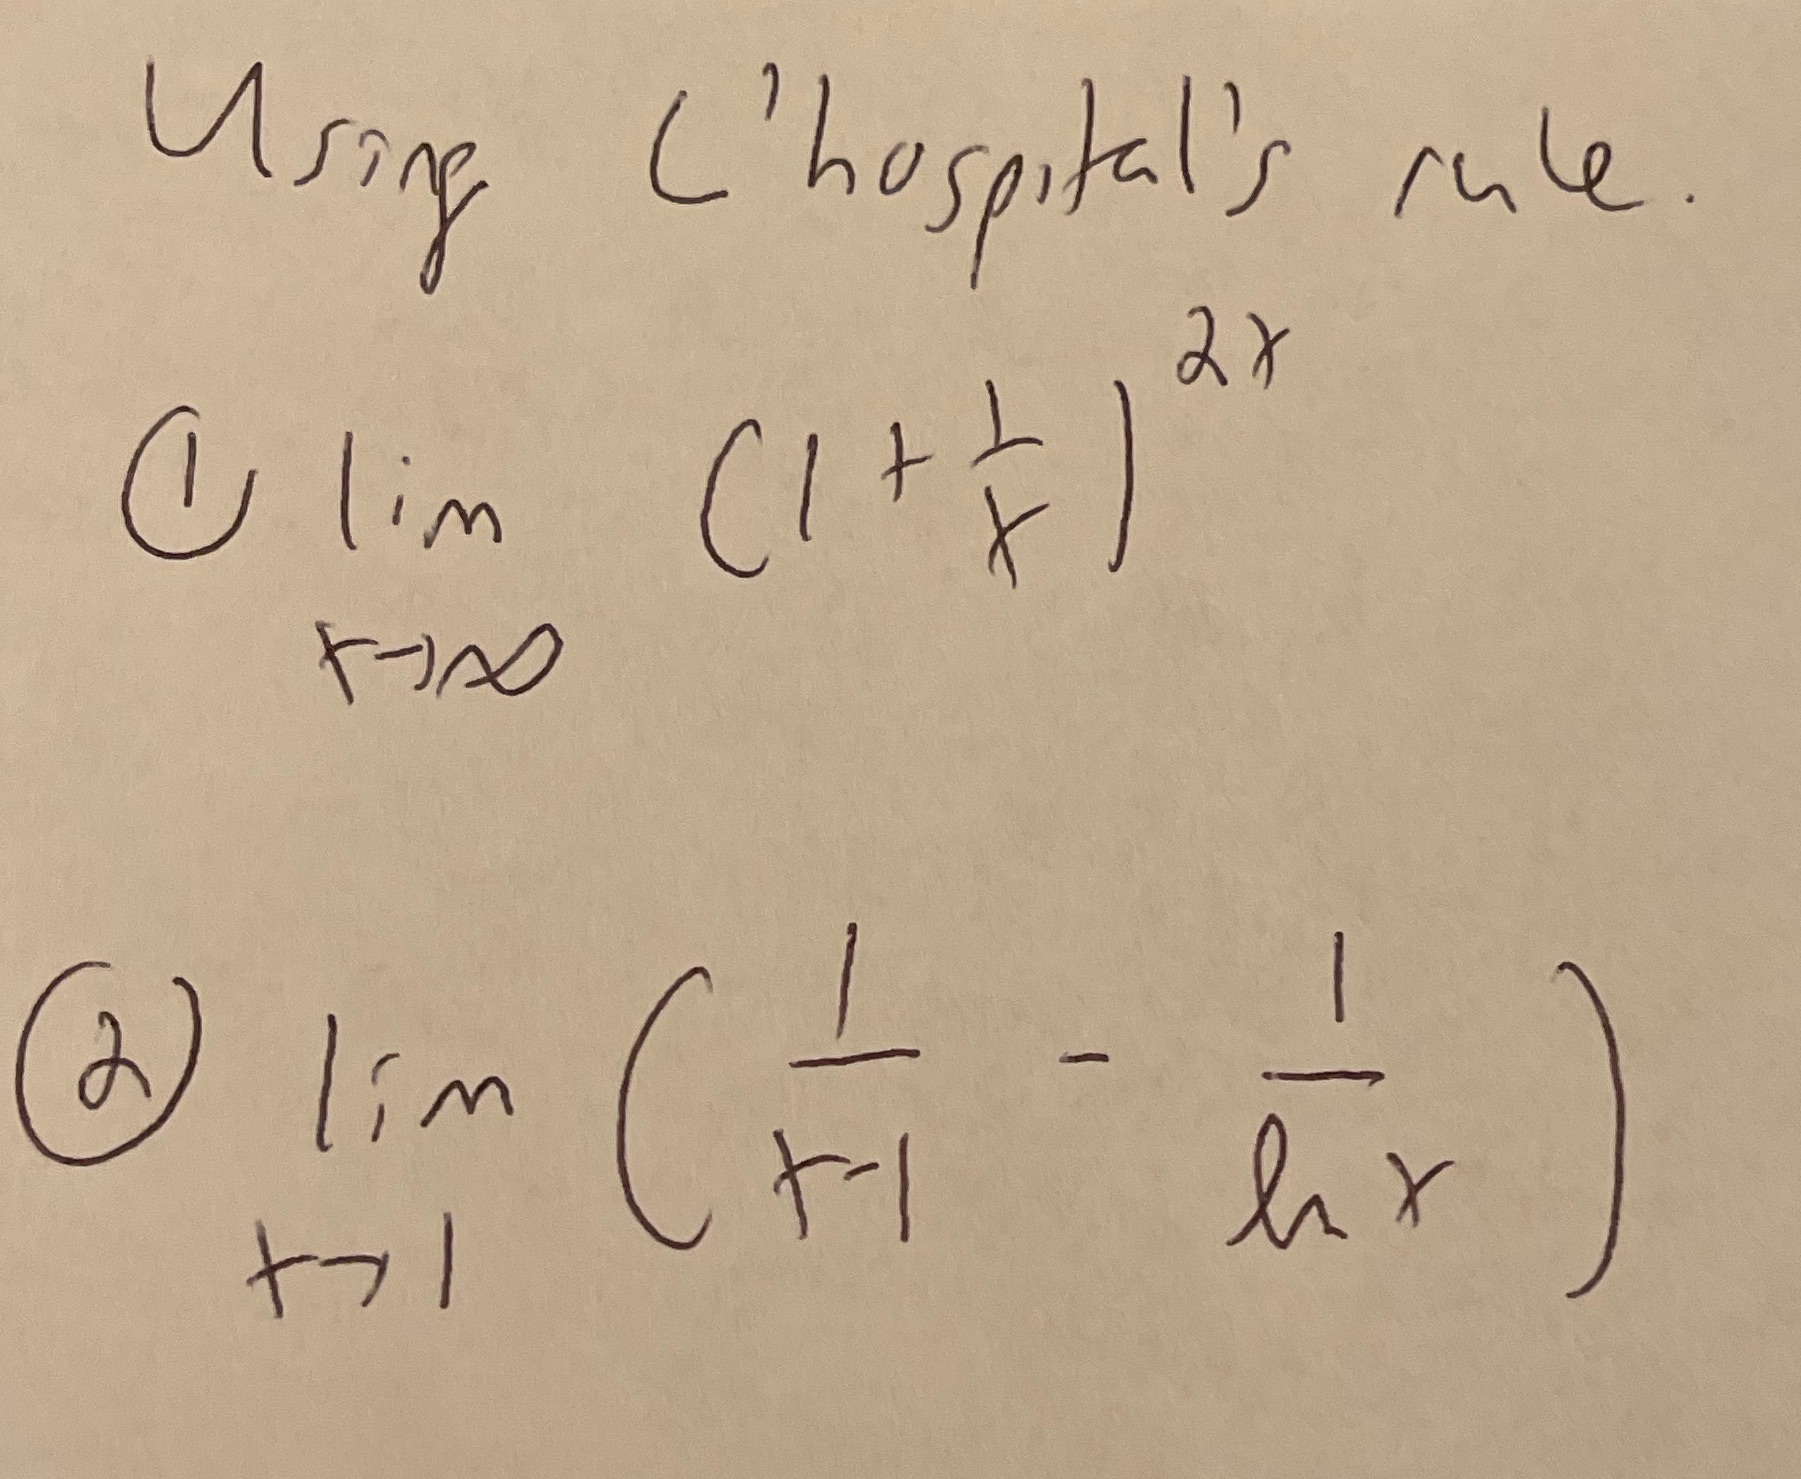 Using L'hospital's rule.
① lim x→∞ (1 + 1/x)^2x
② lim x→1 (1/x-1 - 1/ln x)